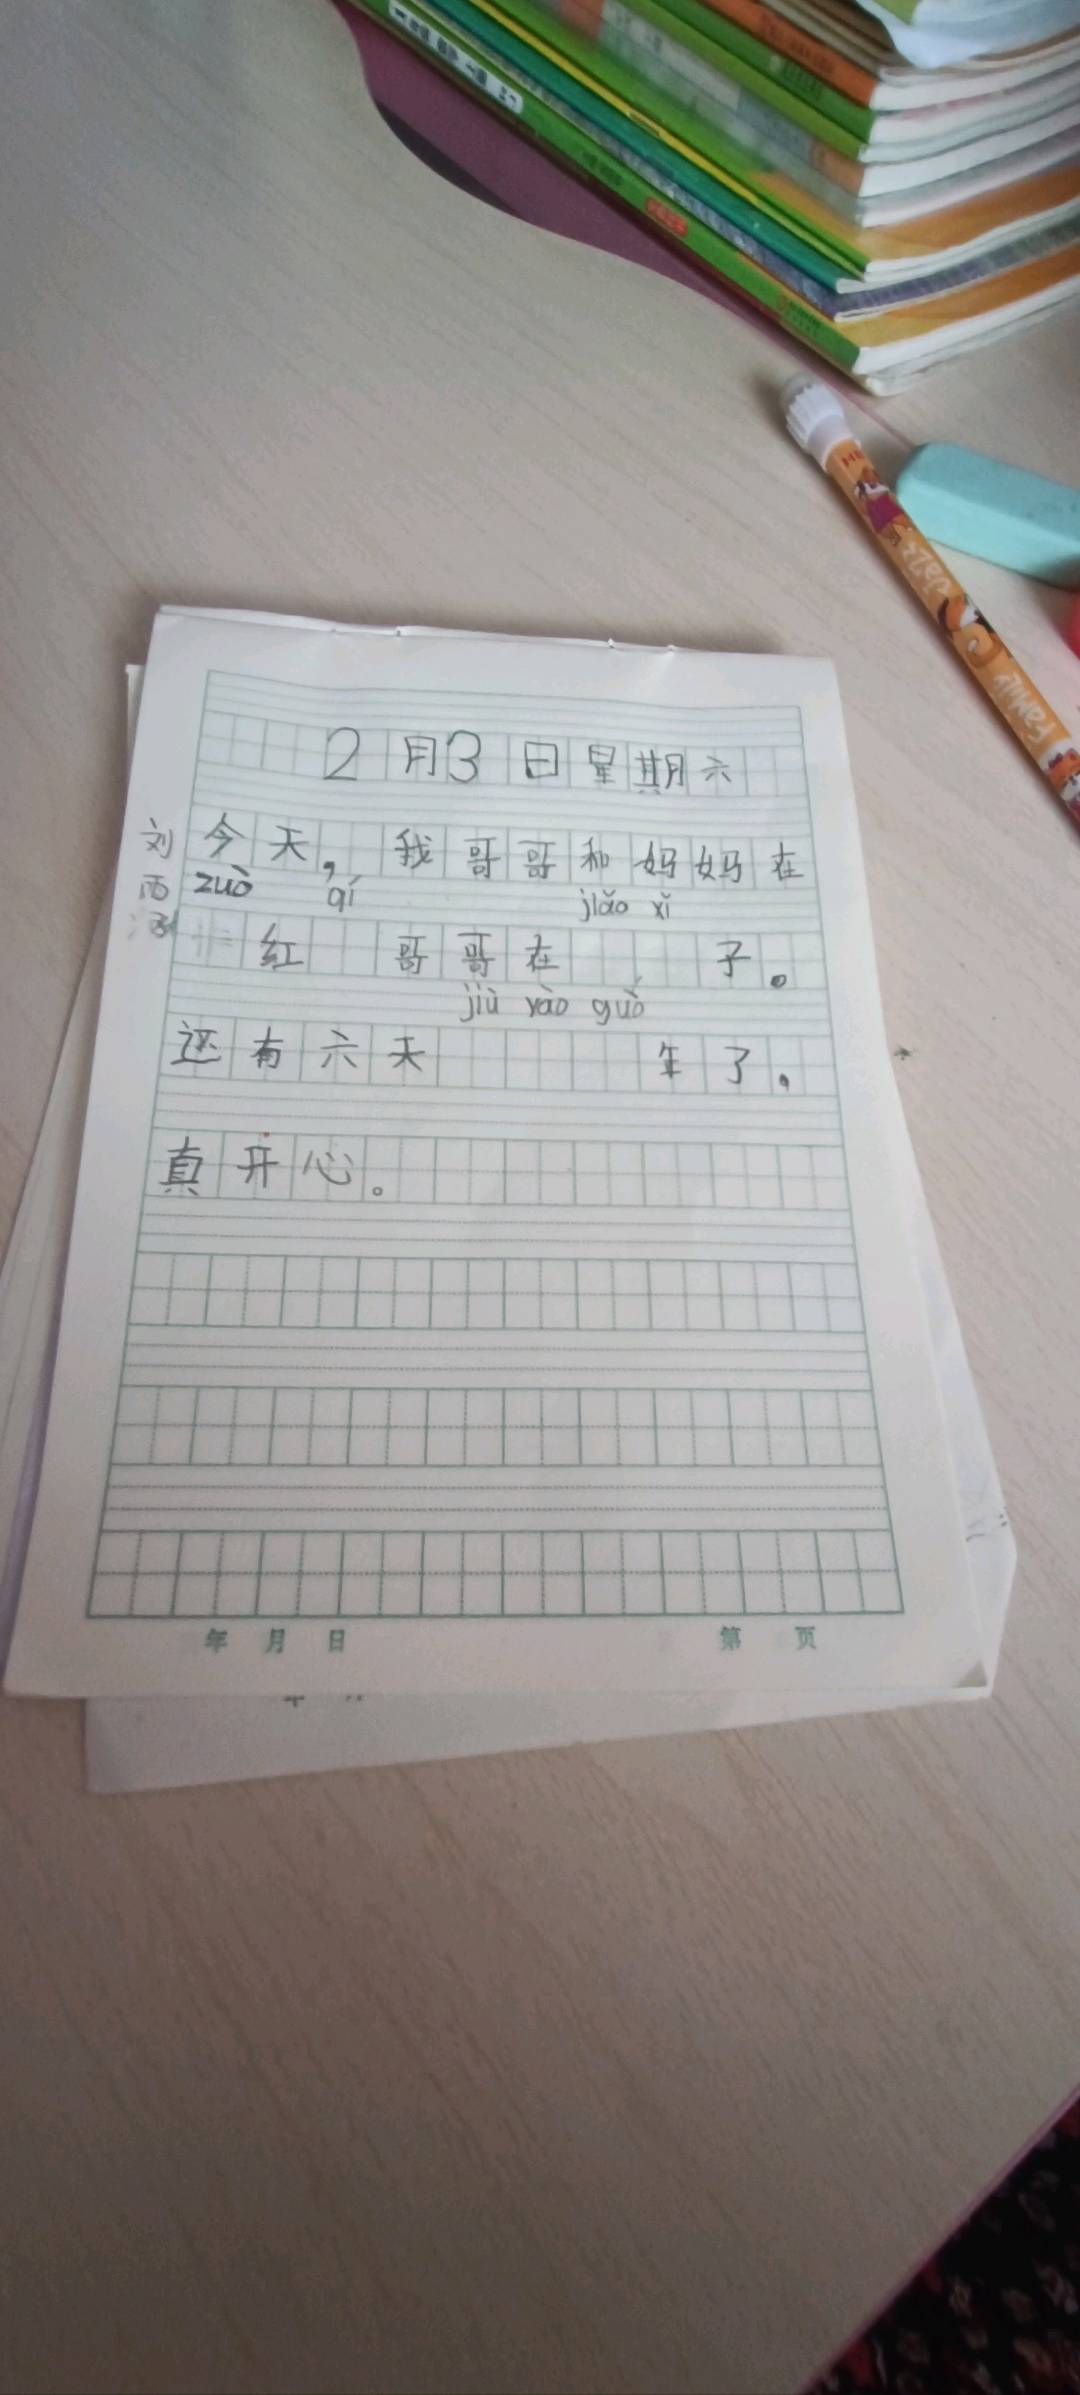 2月3日星期六
今天，我哥哥和妈妈在
zuò qí jiǎo xǐ
红 哥哥在 子。
jiù yào guò
还有六天 年了，
真开心。
年 月 日 第 页
刘
雨